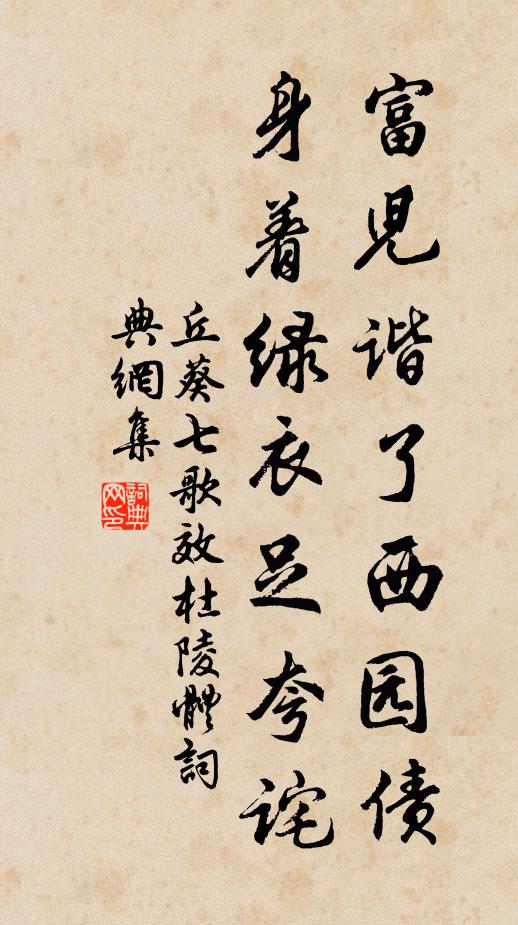 富児谐了西园债
身着绿衣足夸诧
丘葵七歌效杜陵體詞
典網集
詞典
网印